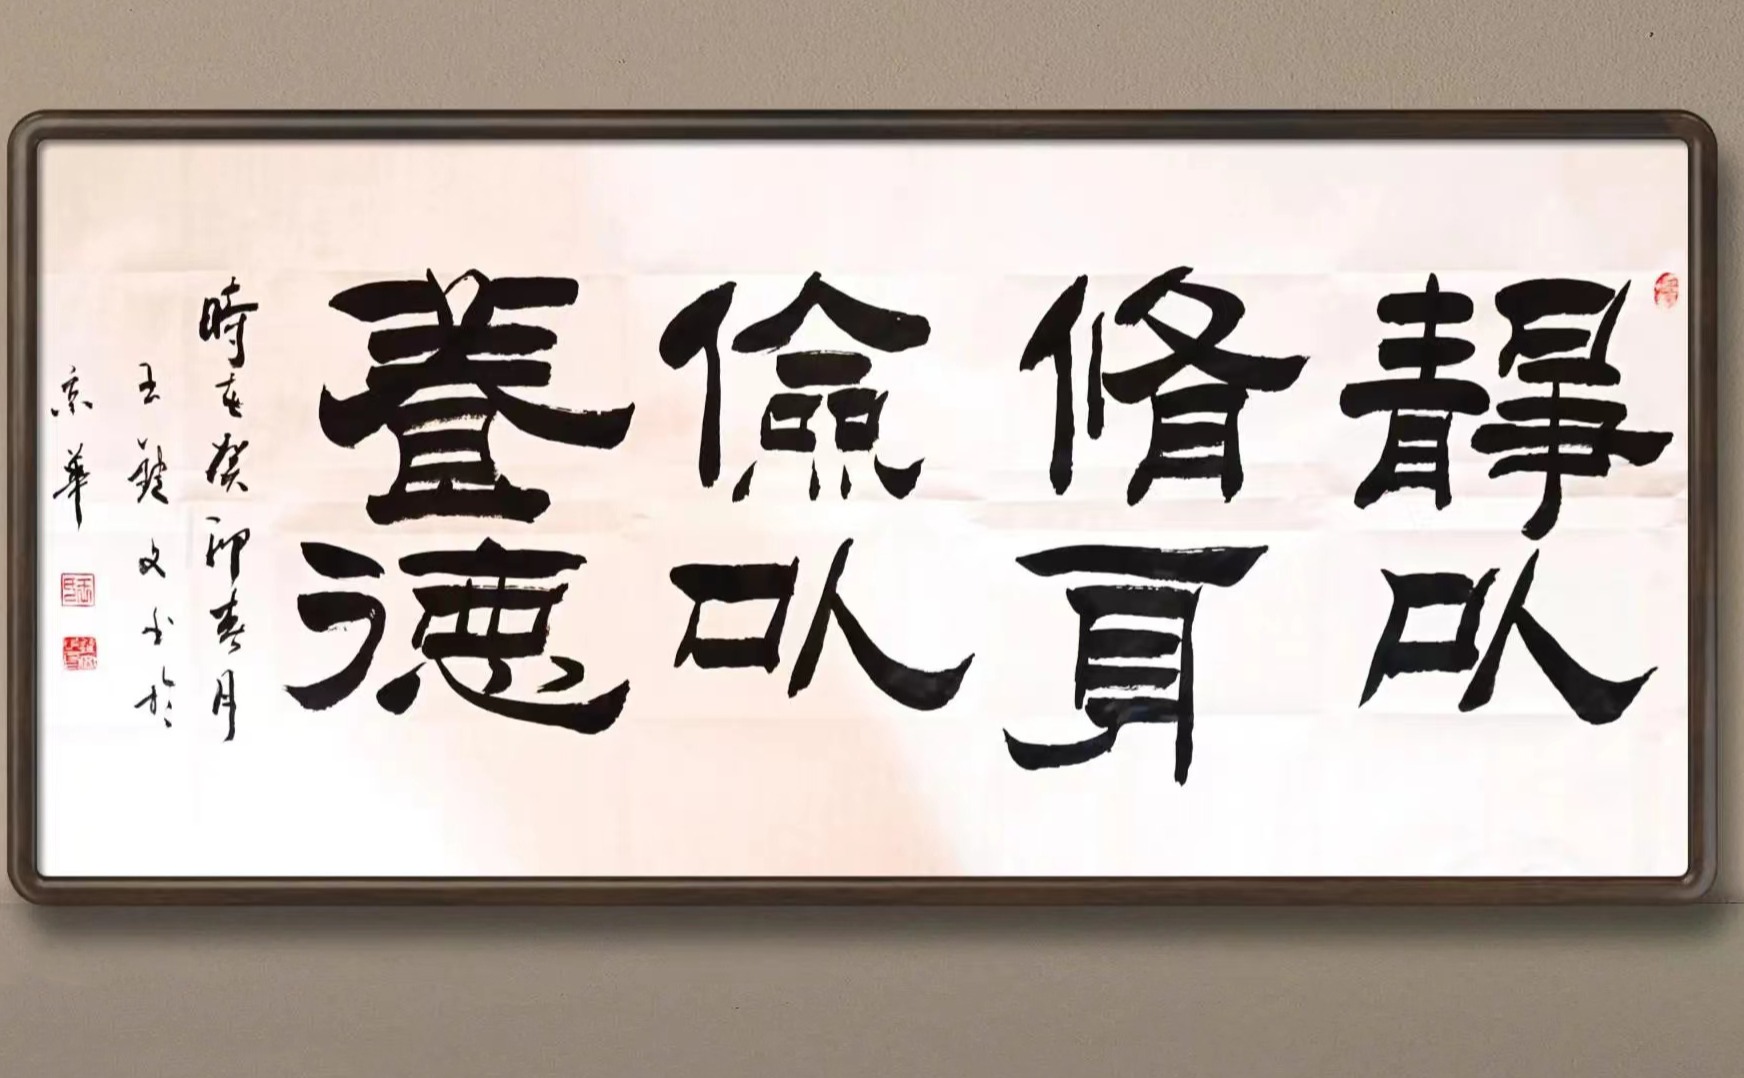 靜以
脩身
儉以
養德
時在癸卯春月
玉鍵文書於
京華